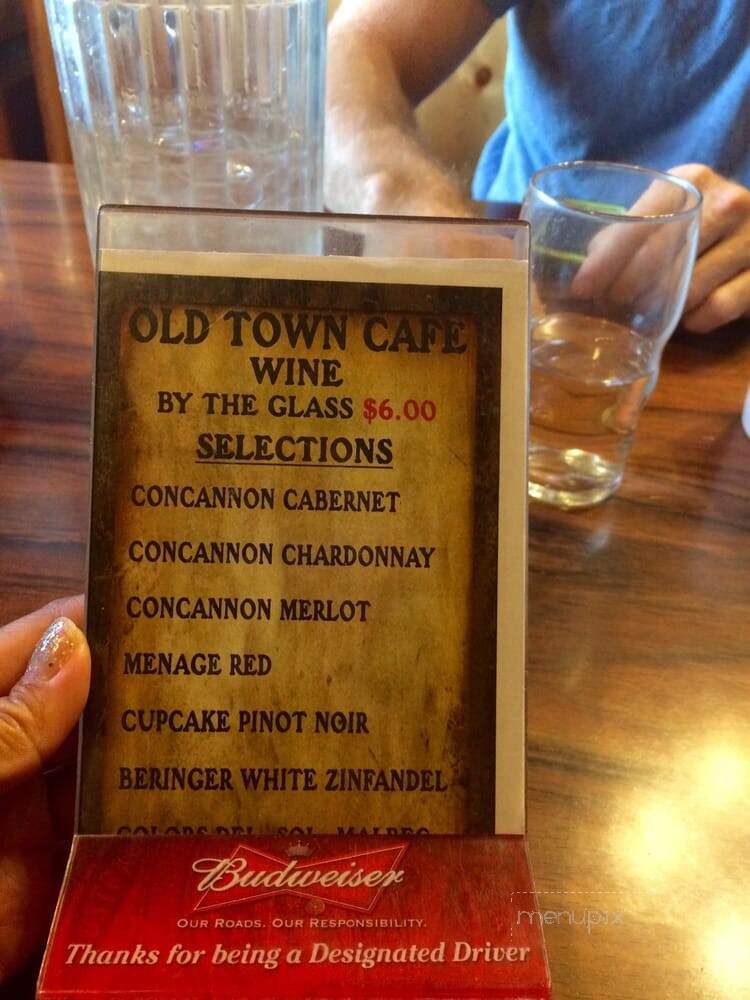 OLD TOWN CAFE
WINE
BY THE GLASS $6.00
SELECTIONS
CONCANNON CABERNET
CONCANNON CHARDONNAY
CONCANNON MERLOT
MENAGE RED
CUPCAKE PINOT NOIR
BERINGER WHITE ZINFANDEL
COLORS DEL SOL MALBEC
Budweiser
OUR ROADS. OUR RESPONSIBILITY.
Thanks for being a Designated Driver
menupix